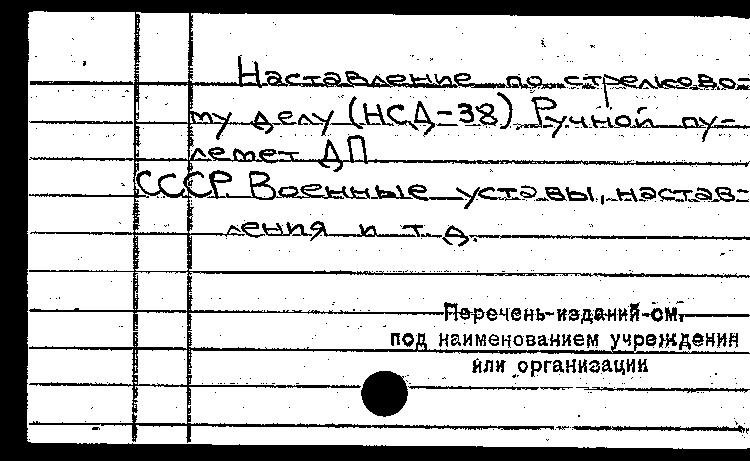 Наставление по стрелково-
му делу (НСД-38) Ручной пу-
лемет ДП
СССР. Военные уставы, настав-
ления и т. д.
Перечень изданий см.
под наименованием учреждения
или организации